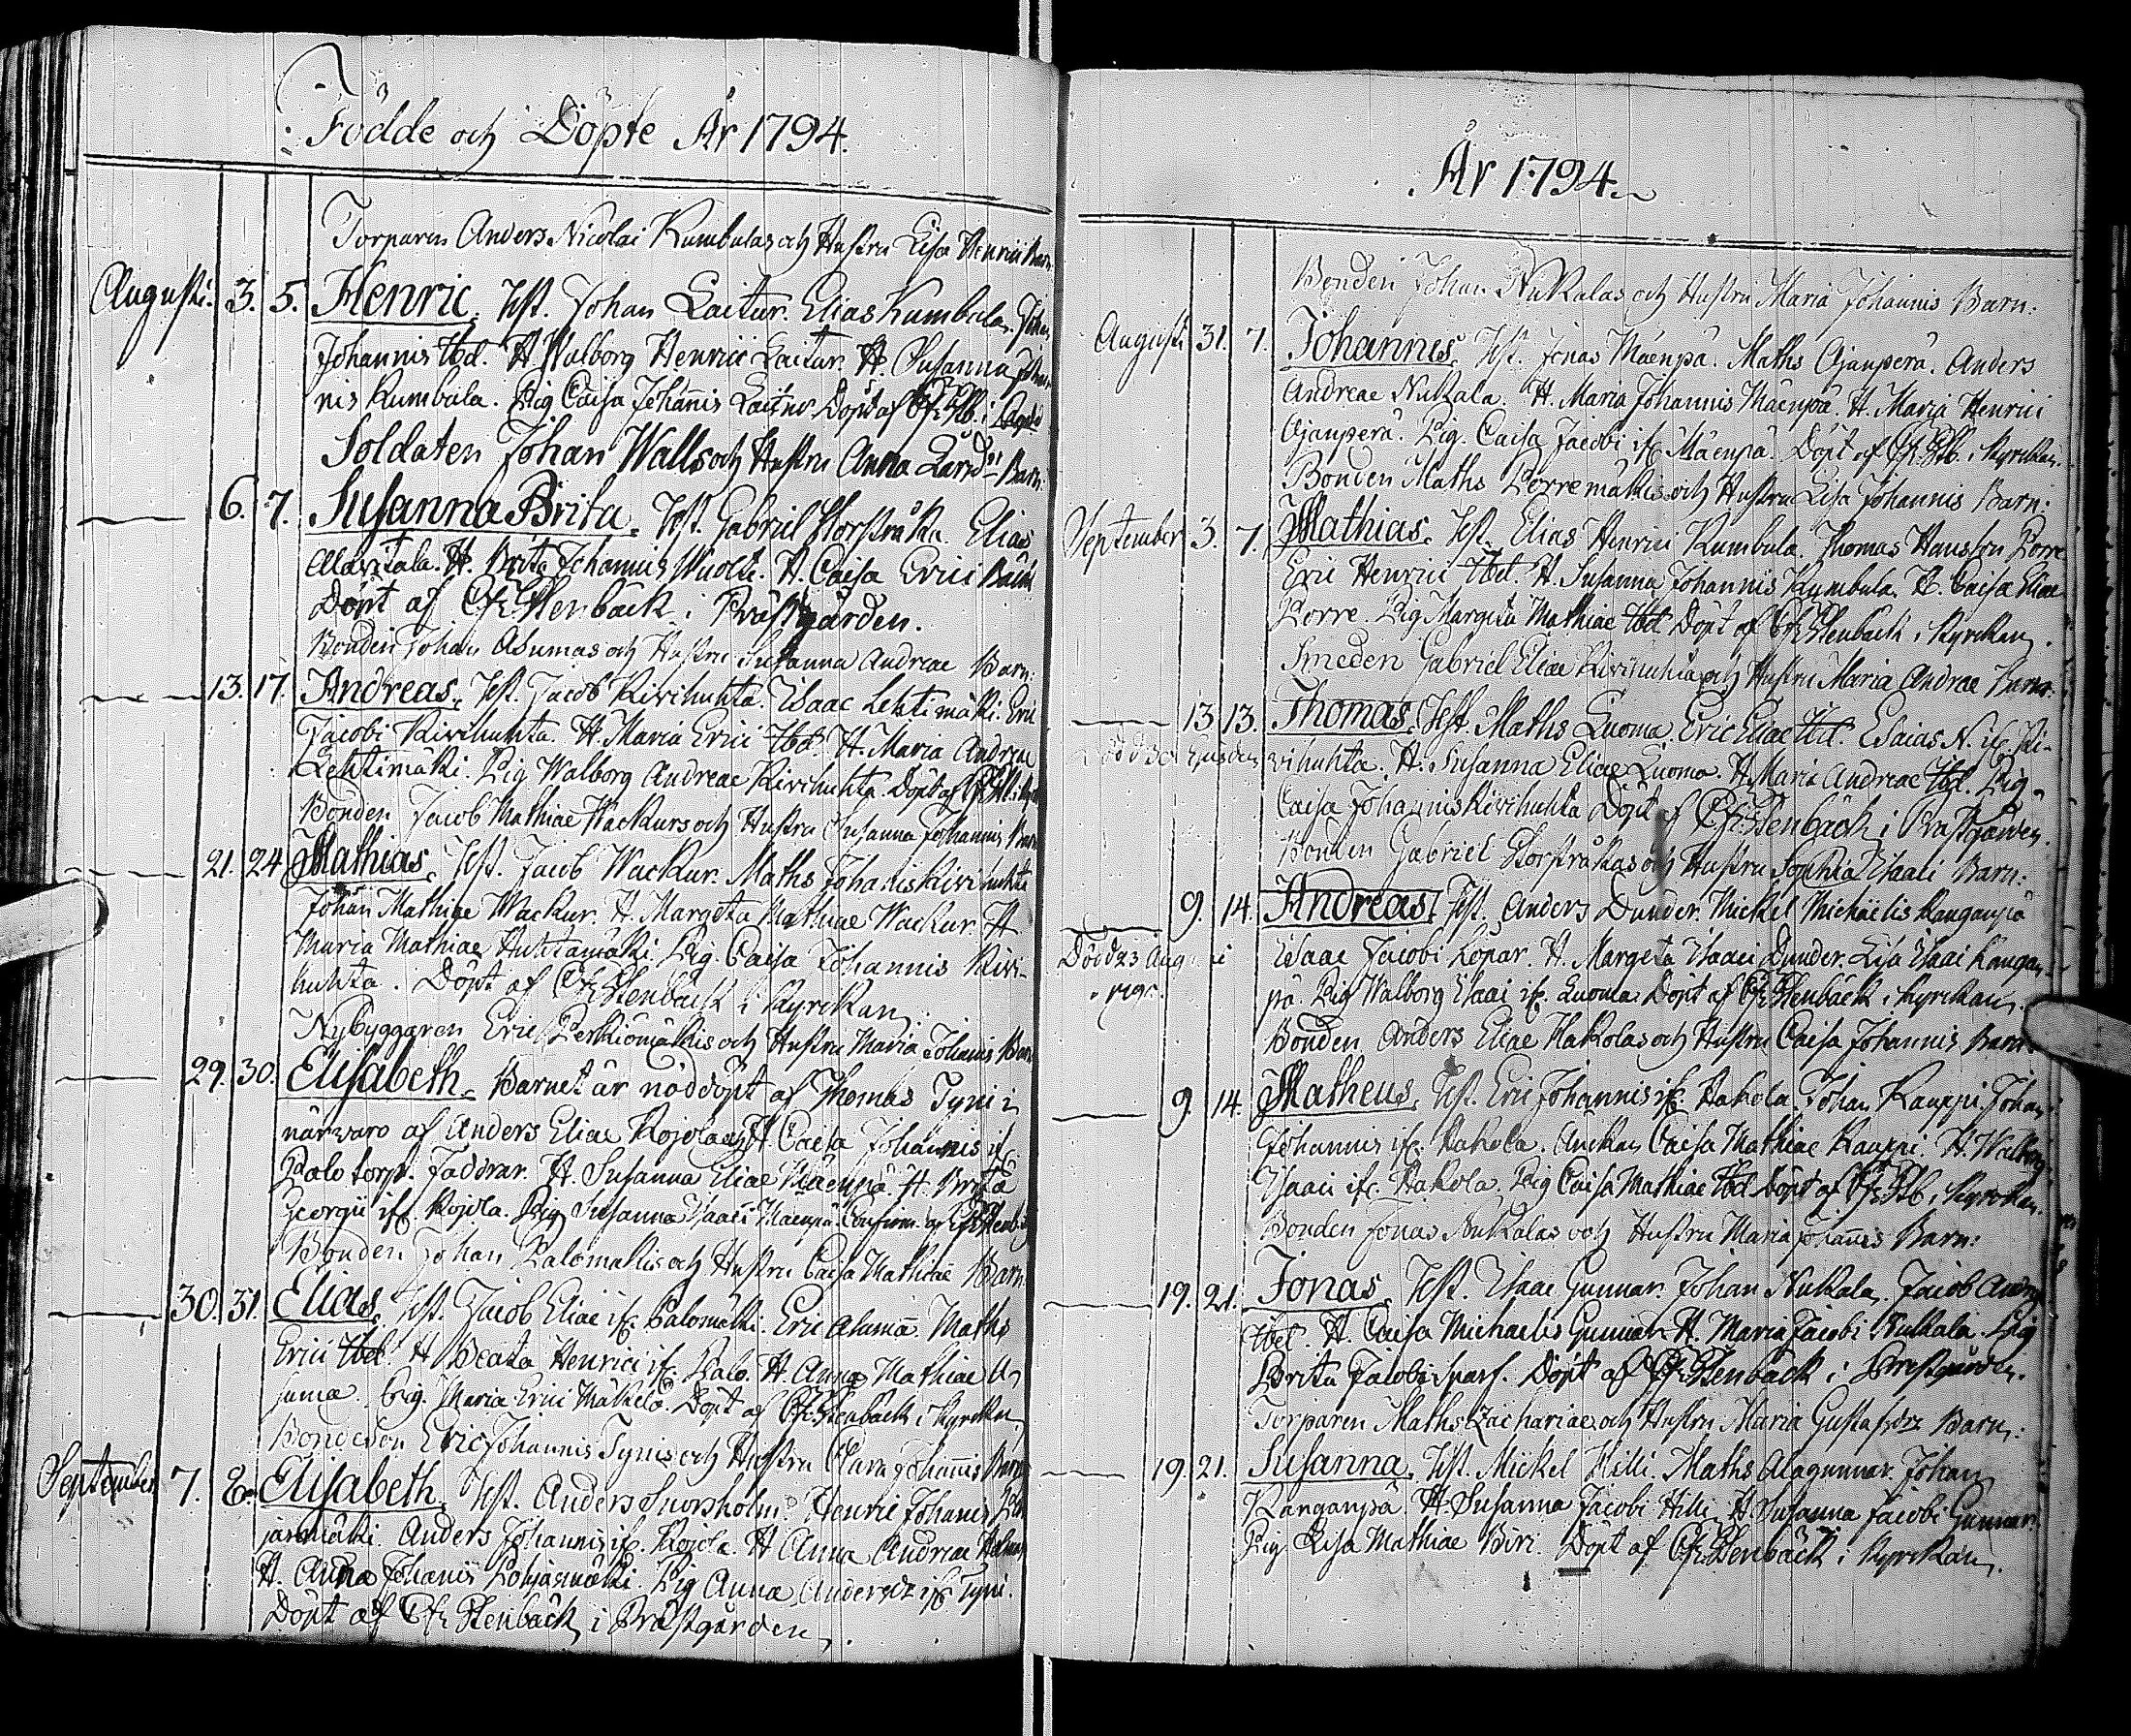 Födde och Döpte År 1794.
Torparen Anders Nicolai Kumbulas och Hustru Lisa Henrici Barn
Augusti. 3. 5. Henric. Test. Johan Laitur. Elias Kumbula. Johan
Johannis Ibd. H. Walborg Henrici Laitur. H. Susanna Johan
nis Kumbula. Pig. Caisa Johannis Döpt af i
Soldaten Johan Walls och Hustru Anna Barn.
6. 7. Susanna Brita. Test. Gabriel Storstråka. Elias
Alavitala. H. Brita Johannis H. Caisa Erici
Döpt af Stenbäck i Prästgården.
Bonden Johan Asumas och Hustru Susanna Andreae Barn:
13. 17. Andreas. Test. Jacob Kivihuhta. Isaac Lehtimäki. Eric
Jacobi Kivihuhta. H. Maria Erici Ibd. H. Maria Andreae
Lehtimäki. Pig Walborg Andreae Kivihuhta. Döpt af
Bonden Jacob Mathiae Wackurs och Hustru Susanna Johannis Barn
21. 24 Mathias. Test. Jacob Wackur. Maths Johannis Kivihuhta
Johan Mathiae Wackur. H. Margeta Mathiae Wackur. H
Maria Mathiae Huhtamäki. Pig. Caisa Johannis Kivi-
huhta. Döpt af Stenbäck i Kyrckan
Nybyggaren Eric Perkiömäkis och Hustru Maria Johannis Barn
29. 30. Elisabeth. Barnet är nöddöpt af Thomas Tyni i
närwaro af Anders Eliae Kojola och H Caisa Johannis
Palo torp. Faddrar. H. Susanna Eliae Mäenpä. H. Brita
Georgii Kojola. Pig Susanna Isaaci Mäenpä. Confirm. af
Bonden Johan Palomäkis och Hustru Caisa Mathiae Barn.
30. 31. Elias. Test. Jacob Eliae Palomäki. Eric Maths
Erici Ibd. H Beata Henrici Palo. H. Anna Mathiae
Pig. Maria Erici Mäkelä. Döpt af Stenbäck i Kyrckan
Bondeson Eric Johannis Tynis och Hustru Clara Johannis Barn
September 7. 8. Elisabeth. Test. Anders Snorsholm. Henric Johannis
Anders Johannis Kojola. H Anna Andreae
H. Anna Johannis Pohjasmäki. Pig Anna Andersdr Tyni.
Döpt af Stenbäck i Prästgården.
År 1794.
Bonden Johan Nukalas och Hustru Maria Johannis Barn:
Augusti 31. 7. Johannes. Test. Jonas Mäenpä. Maths Ojanperä. Anders
Andreae Nukala. H. Maria Johannis Mäenpä. H. Maria Henrici
Ojanperä. Pig. Caisa Jacobi Mäenpä. Döpt af i Kyrckan.
Bonden Maths Porremäkis och Hustru Lisa Johannis Barn:
September 3. 7. Mathias. Test. Elias Henrici Kumbula. Thomas Porre
Eric Henrici Ibd. H. Susanna Johannis Kumbula. H. Caisa Eliae
Porre. Pig Margeta Mathiae Ibd. Döpt af Stenbäck i Kyrckan.
Smeden Gabriel Eliae Kivihuhta och Hustru Maria Andreae Barn.
13 13. Thomas. Test. Maths Luoma. Eric Eliae Ibd. Esaias Ki-
vihuhta. H. Susanna Eliae Luoma. H. Maria Andreae Ibd. Pig
Caisa Johannis Kivihuhta Döpt af Stenbäck i Prästgården.
Bonden Gabriel Storstråkas och Hustru Sophia Isaaci Barn:
9. 14. Andreas. Test. Anders Dunder. Mickel Michaelis Kanganpä
Isaac Jacobi Kopar. H. Margeta Isaaci Dunder. Lisa Isaaci Kangan-
pä. Pig Walborg Isaaci Luoma. Döpt af Stenbäck i Kyrckan.
Bonden Anders Eliae Hakolas och Hustru Caisa Johannis Barn:
9. 14. Matheus. Test. Eric Johannis Hakola. Johan Kauppi. Johan
Johannis Hakola. Caisa Mathiae Kauppi. H. Walborg
Isaaci Hakola. Pig Caisa Mathiae Ibd. Döpt af i Kyrckan.
Bonden Jonas Nukalas och Hustru Maria Johannis Barn:
19. 21. Jonas. Test. Isaac Gunnar. Johan Nukala. Jacob
Ibd. H. Caisa Michaelis Gunnar. H. Maria Jacobi Nukala. Pig
Brita Jacobi Döpt af Stenbäck i Prestgården.
Torparen Maths Zachariae och Hustru Maria Gustafsdr Barn:
19. 21. Susanna. Test. Mickel Hilli. Maths Alagunnar. Johan
Kanganpä. H. Susanna Jacobi Hilli. H. Susanna Jacobi Gunnar.
Pig Lisa Mathiae Biri. Döpt af Stenbäck i Kyrckan.